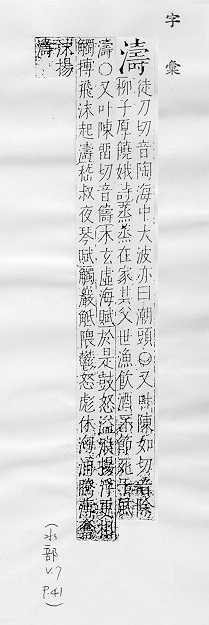 字彙
濤 徒刀切音陶海中大波亦曰潮頭○又叶陳如切音除
柳子厚饒娥詩蒸蒸在家其父世漁飲酒不節死于風
濤○又叶陳留切音儔木玄虛海賦於是鼓怒溢浪揚浮更相
觸搏飛沫起濤嵇叔夜琴賦觸巖觝隈鬱怒彪休洶涌騰薄奮
沫揚
濤
(水部
V.7
P.41)